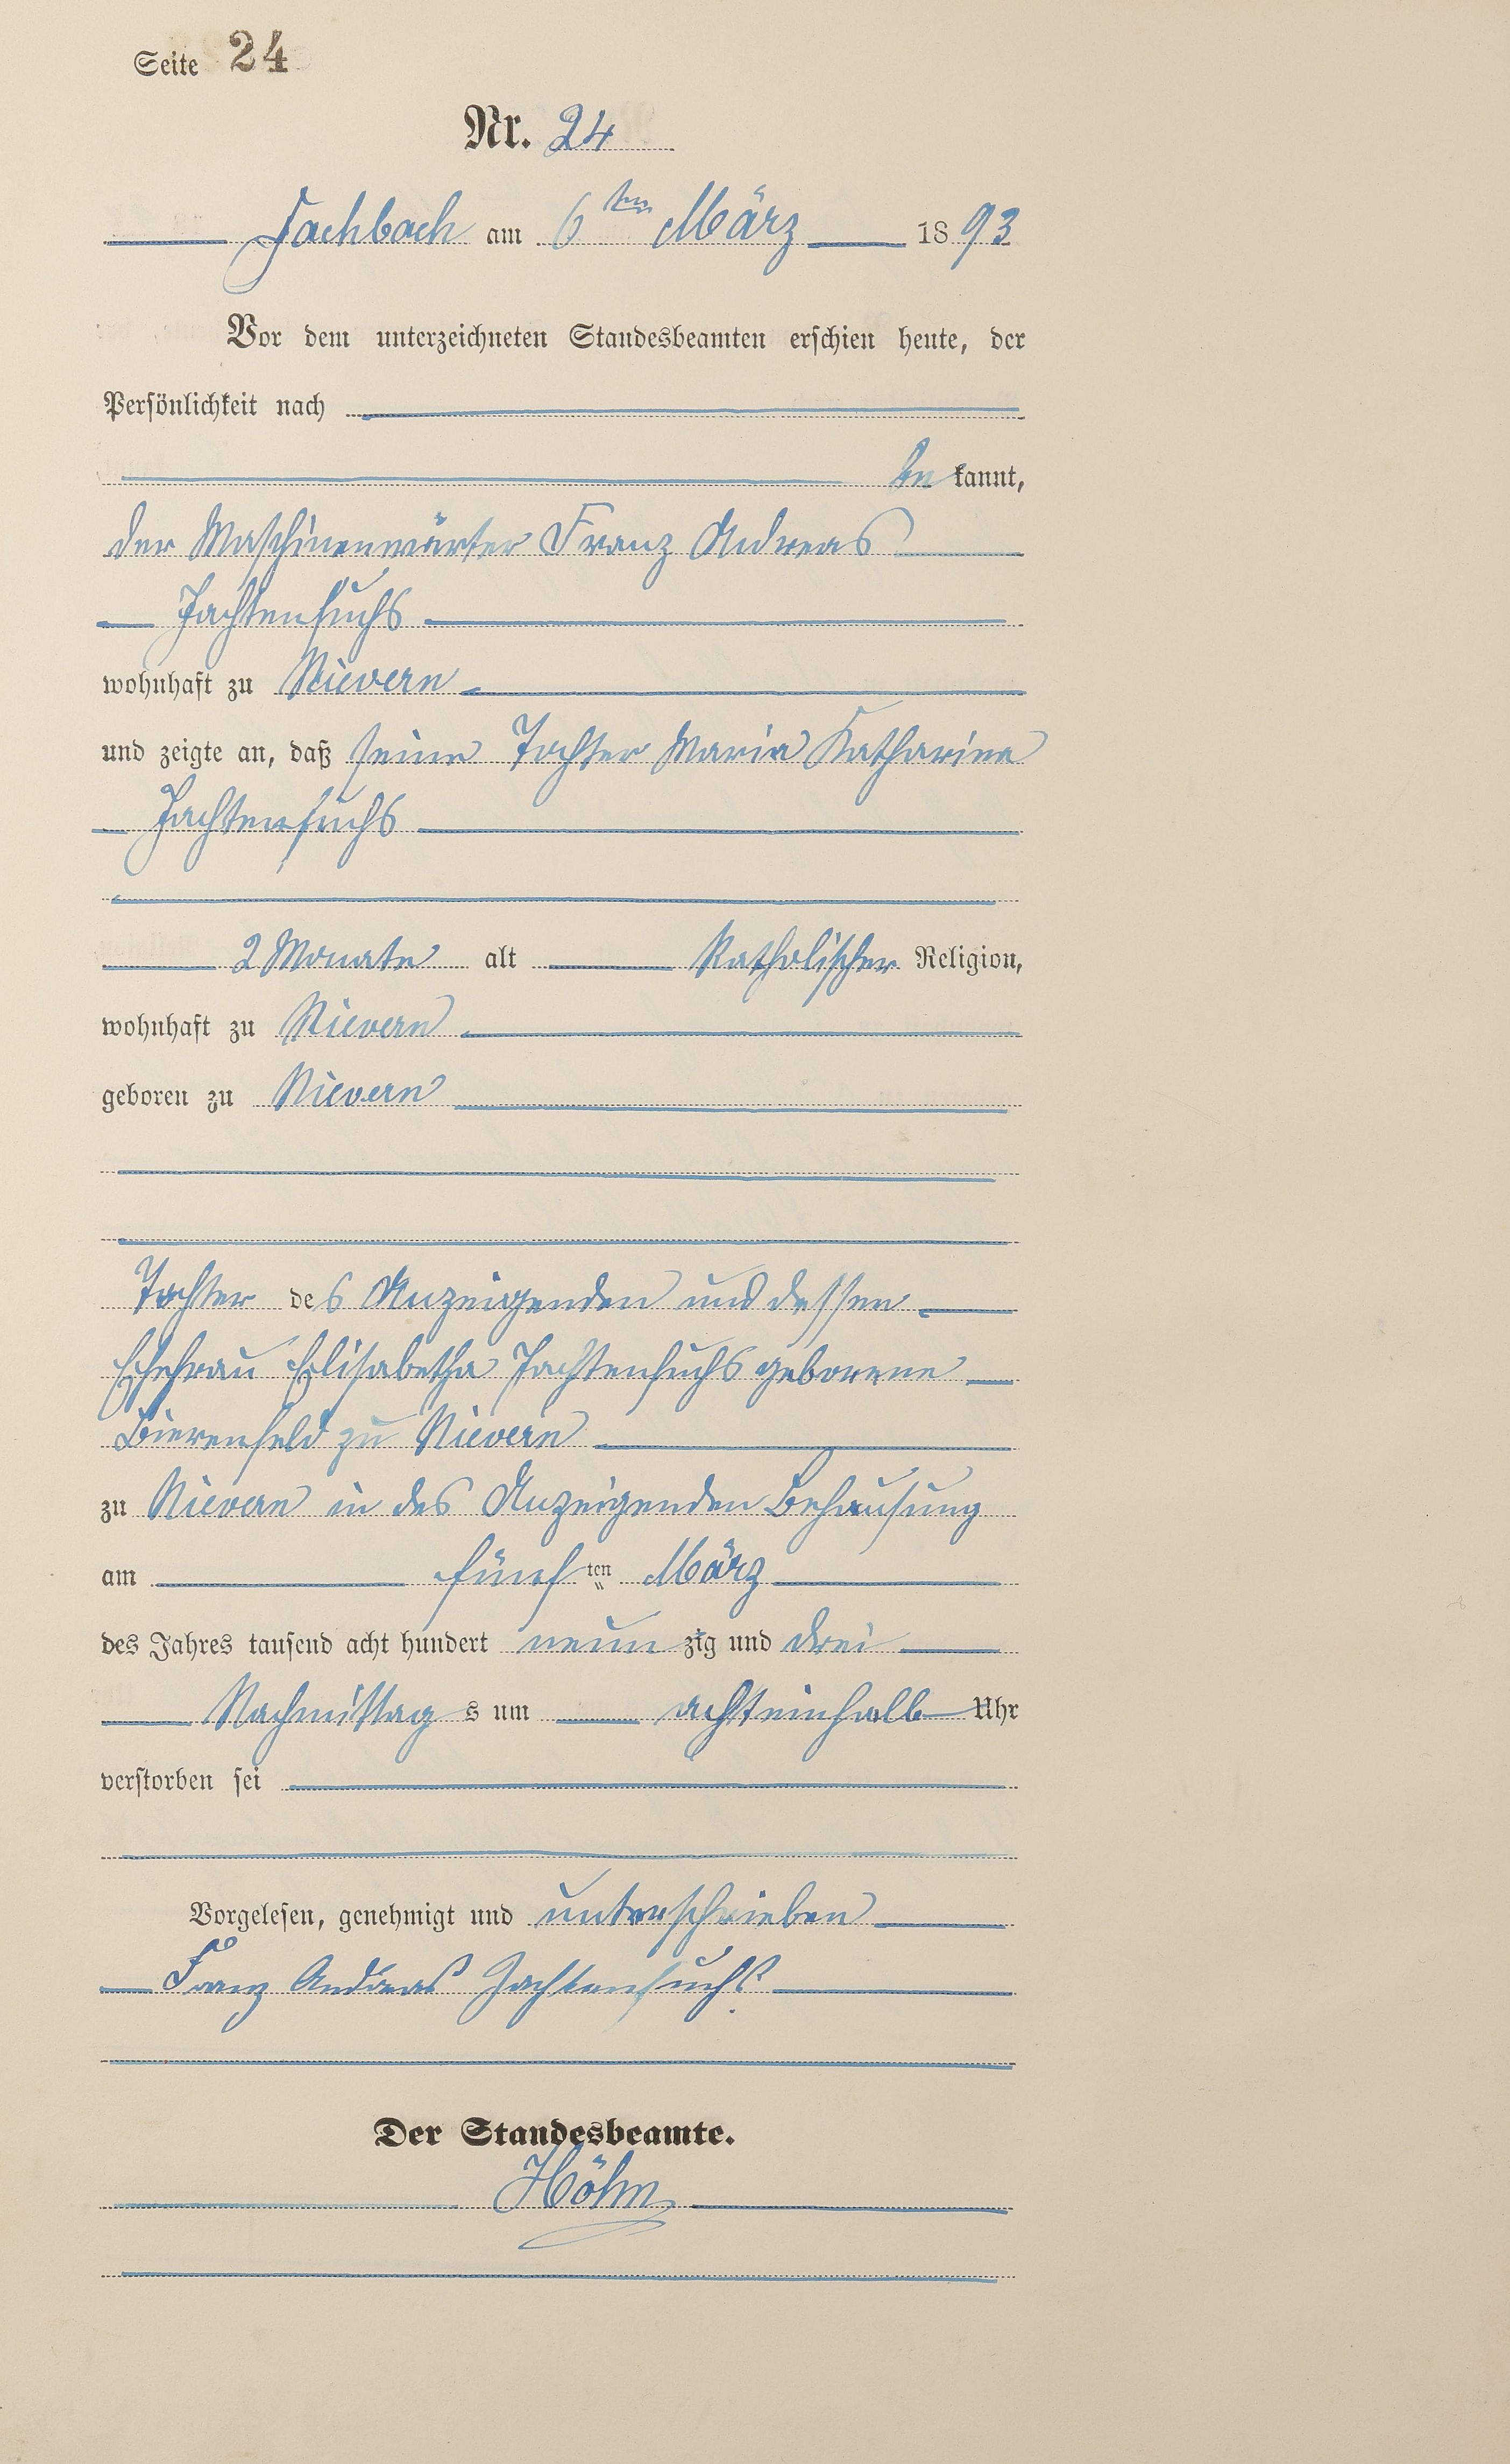 Seite 24
Nr. 24
Fachbach am 6ten März 1893
Vor dem unterzeichneten Standesbeamten erschien heute, der
Persönlichkeit nach
bekannt,
der Maschinenwärter Franz Andreas
Jachtenfuchs
wohnhaft zu Nievern
und zeigte an, daß seine Tochter Maria Katharina
Jachtenfuchs
2 Monate alt katholischer Religion,
wohnhaft zu Nievern
geboren zu Nievern
Tochter des Anzeigenden und dessen
Ehefrau Elisabetha Jachtenfuchs geborene
Bierenfeld zu Nievern
zu Nievern in des Anzeigenden Behausung
am fünften März
des Jahres tausend acht hundert neunzig und drei
Nachmittags um achteinhalb Uhr
verstorben sei
Vorgelesen, genehmigt und unterschrieben
Franz Andreas Jachtenfuchs
Der Standesbeamte.
Höhn